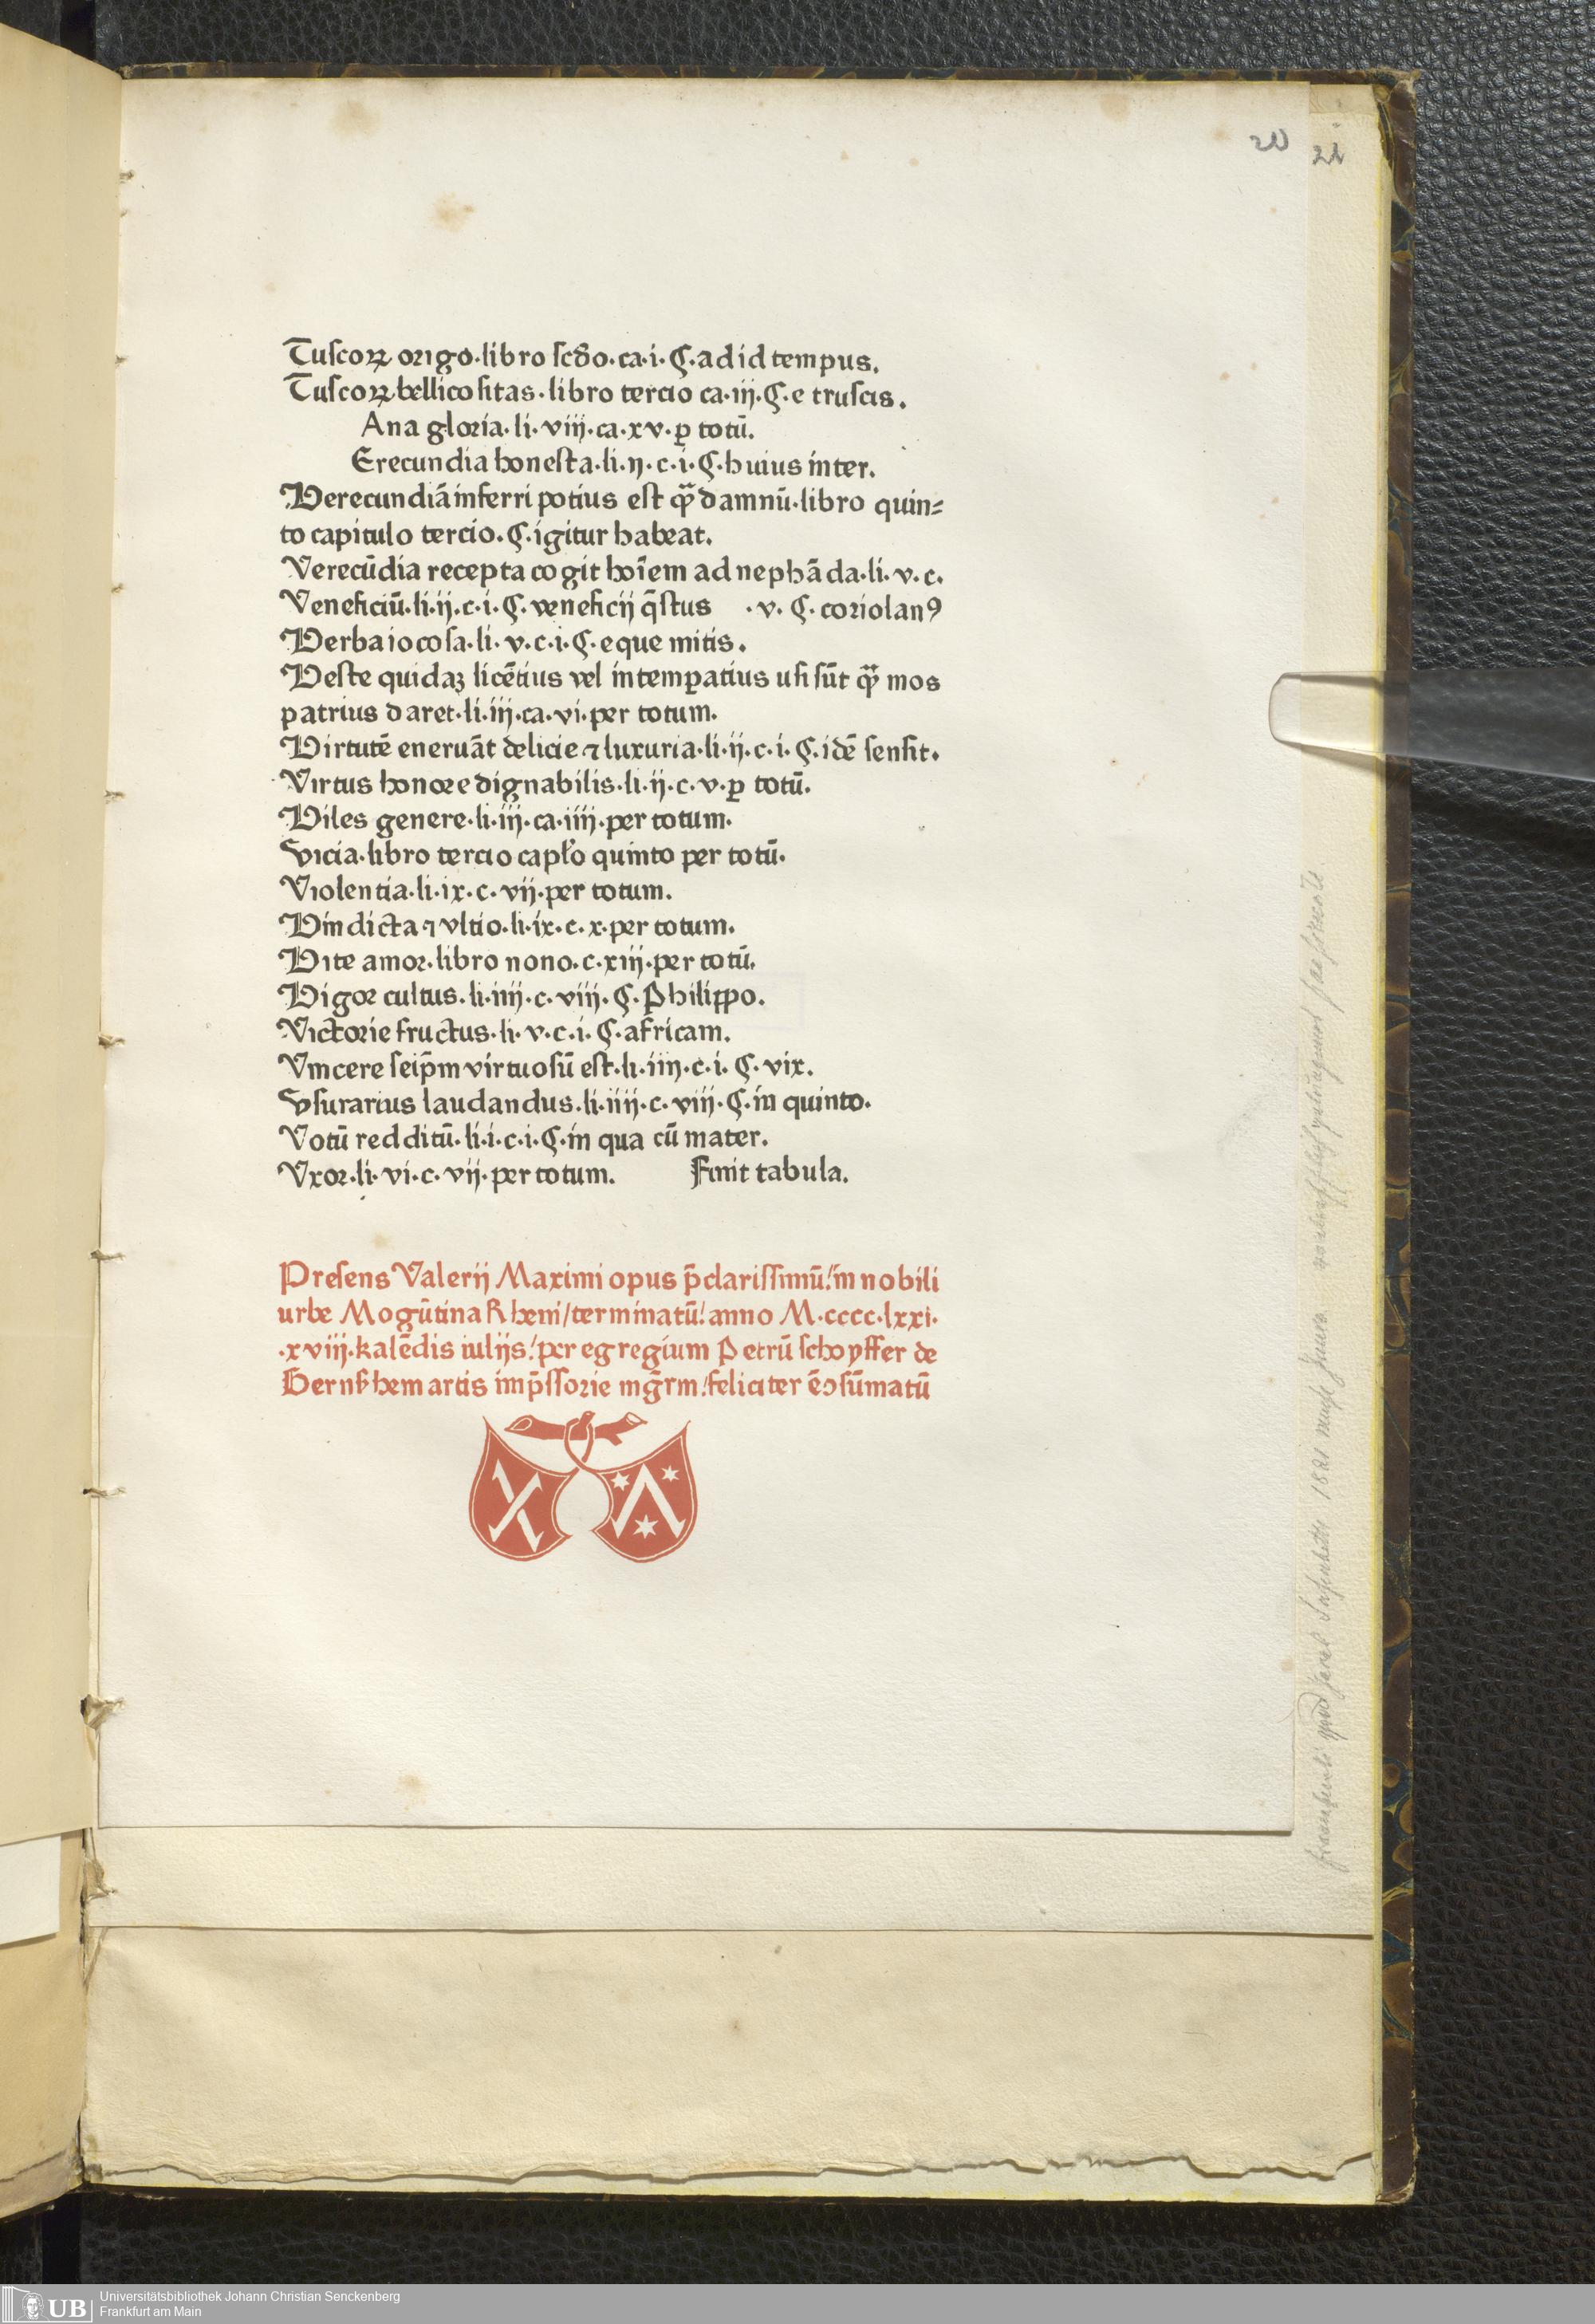 20 22
Tuscoꝝ origo·libro scđo·ca·i·ꝯ·ad id tempus.
Tuscoꝝ bellicositas·libro tercio ca·iij·ꝯ·e truscis.
Ana gloria·li·viij·ca·xv·ꝑ totū.
Erecundia honesta·li·ij·c·i·ꝯ·huius inter.
Verecundiā inferri potius est qᷓ damnū·libro quin⸗
to capitulo tercio·ꝯ·igitur habeat.
Verecūdia recepta cogit hoīem ad nephāda·li·v·c.
Veneficiū·li·ij·c·i·ꝯ·veneficij q̄stus ·v·ꝯ·coriolanꝰ
Verba iocosa·li·v·c·i·ꝯ·eque mitis.
Veste quidaꝫ licētius vel intemꝑatius usi sūt qᷓ mos
patrius daret·li·iij·ca·vi·per totum.
Virtutē eneruāt delicie ⁊ luxuria·li·ij·c·i·ꝯ·idē sensit.
Virtus honore dignabilis·li·ij·c·v·ꝑ totū.
Viles genere·li·iij·ca·iiij·per totum.
Vicia·libro tercio capło quinto per totū.
Violentia·li·ix·c·vij·per totum.
Vindicta ⁊ vltio·li·ix·c·x·per totum.
Vite amor·libro nono·c·xiij·per totū.
Vigor cultus·li·iiij·c·viij·ꝯ·Philippo.
Victorie fructus·li·v·c·i·ꝯ·africam.
Vincere seip̄m virtuosū est·li·iiij·c·i·ꝯ·vix.
Vsurarius laudandus·li·iiij·c·viij·ꝯ·in quinto.
Votū redditū·li·i·c·i·ꝯ·in qua cū mater.
Vxor·li·vi·c·vij·per totum. Finit tabula.
Presens Valerij Maximi opus p̄clarissimū/in nobili
urbe Mogūtina Rheni/terminatū/anno M·cccc·lxxi·
·xviij·kalēdis iulijs/per egregium Petrū schoyffer de
Gernßhem artis imp̄ssorie mgr̄m/feliciter ē ↄsūmatū
UB
Universitätsbibliothek Johann Christian Senckenberg
Frankfurt am Main